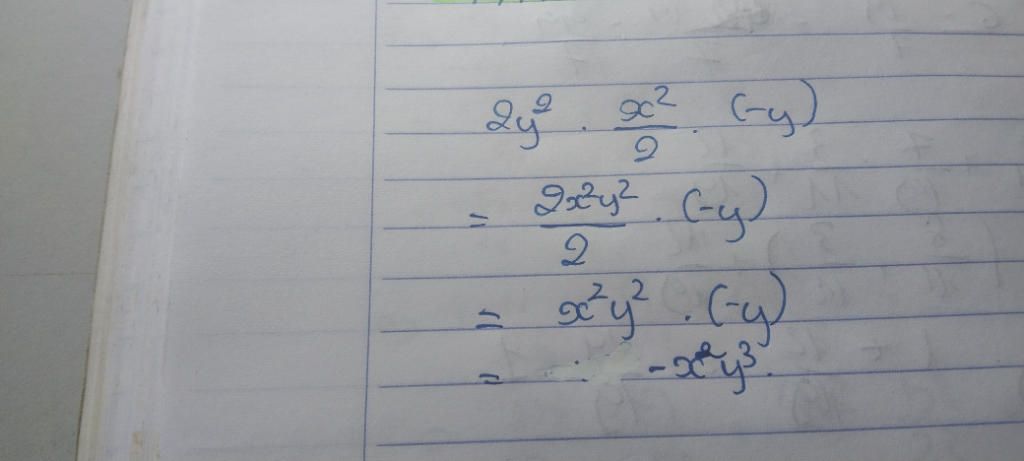 2y² . x²/2 . (-y)
= 2x²y²/2 . (-y)
= x²y² . (-y)
= -x²y³.